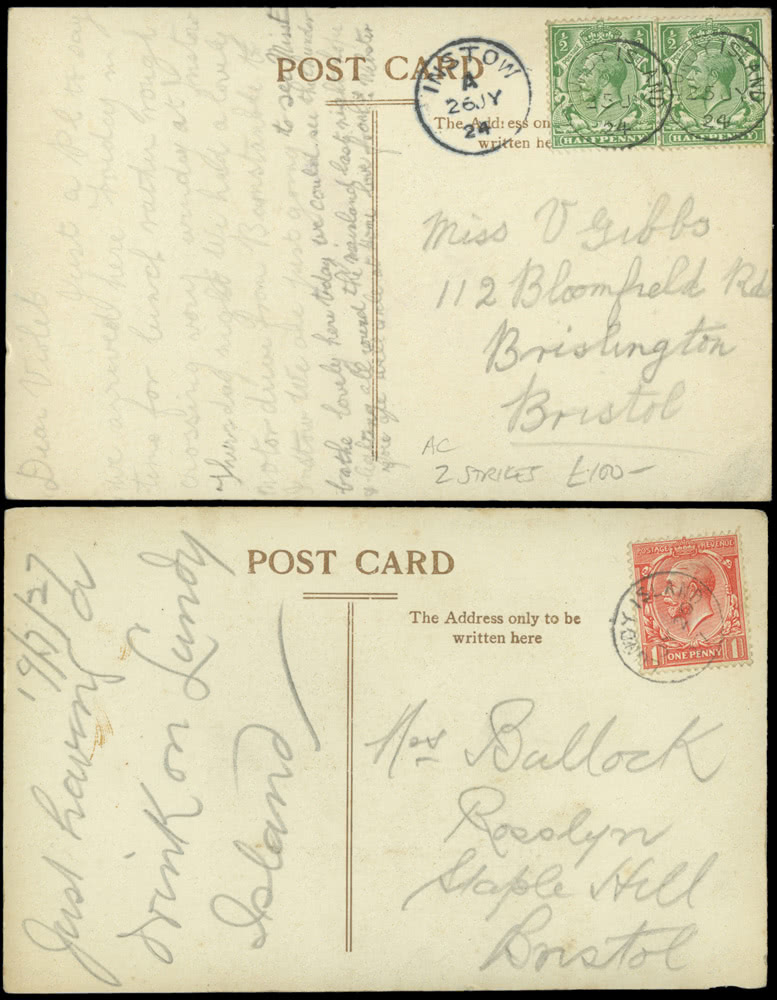 POST CARD
The Address on
written he
INSTOW
A
26 JY
24
Y ISLAND
25 J
24
ISLAND
25 J
24
1/2 1/2
HALFPENNY
1/2 1/2
HALFPENNY
Miss V Gibbs
112 Bloomfield Rd
Brislington
Bristol
AC
2 STRIKES £100-
Dear Violet
Just a p.c. to say
we arrived here Friday in
time for lunch rather rough
crossing very windy at Instow
Thursday night We had a lovely
motor drive from Barnstaple to
Instow We are just going to
bathe lovely here today we could see the thunder
lightning all round the mainland last night hope
you are well love from
POST CARD
The Address only to be
written here
POSTAGE REVENUE
1 ONE PENNY 1
LUNDY ISLAND
19/7/27
Just having a
drink on Lundy
Island
Mrs Bullock
Rosslyn
Staple Hill
Bristol